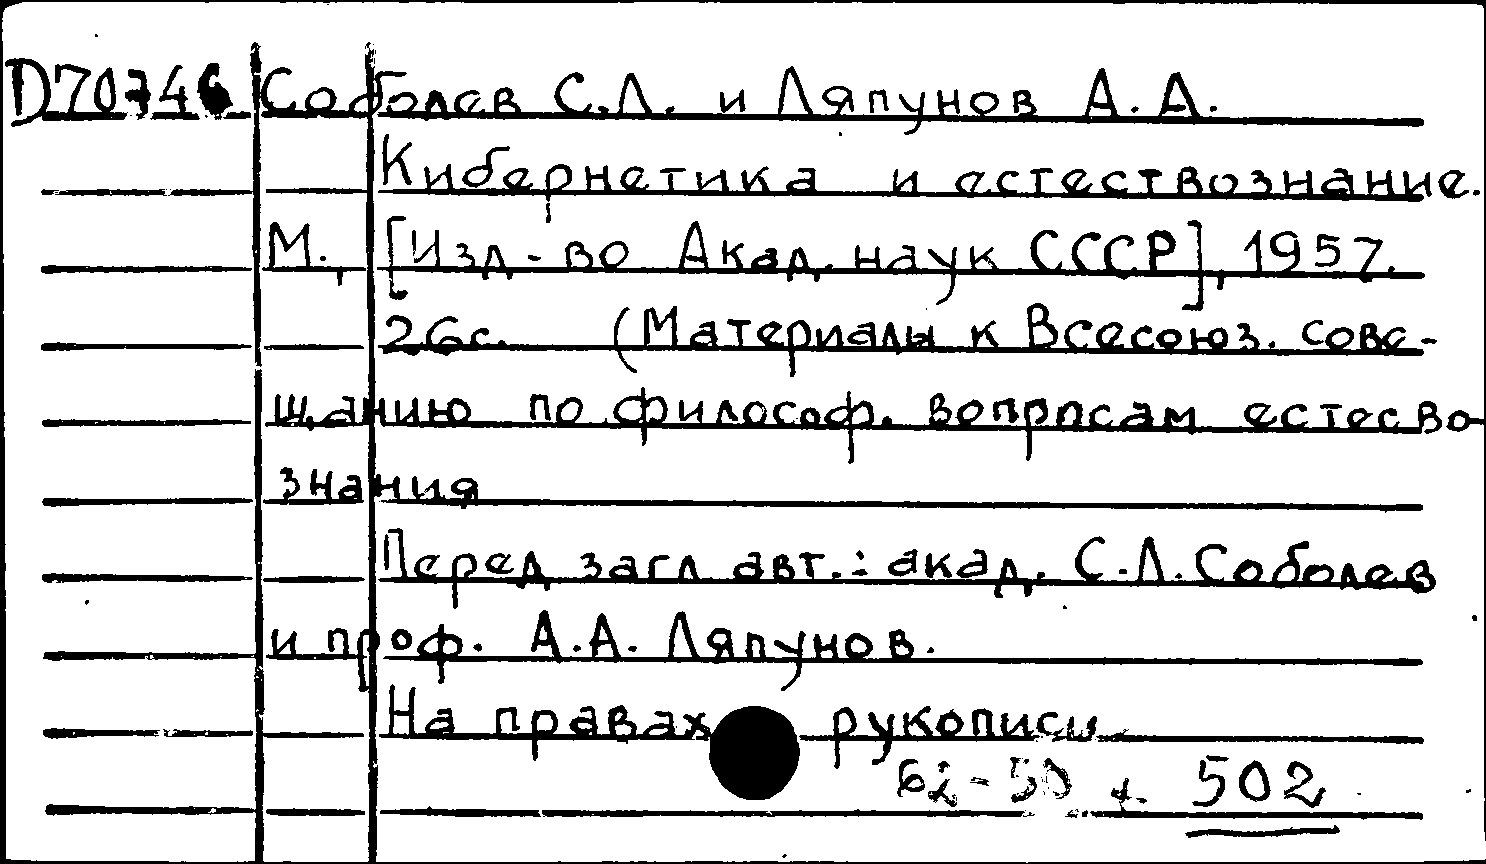 Соболев С.Л. и Ляпунов А.А.
Кибернетика и естествознание.
М., [Изд-во Акад. наук СССР], 1957.
26с. (Материалы к Всесоюз. сове-
щанию по философ. вопросам естество-
знания
Перед загл авт.: акад. С.Л. Соболев
и проф. А.А. Ляпунов.
На правах рукописи
62-50 + 502